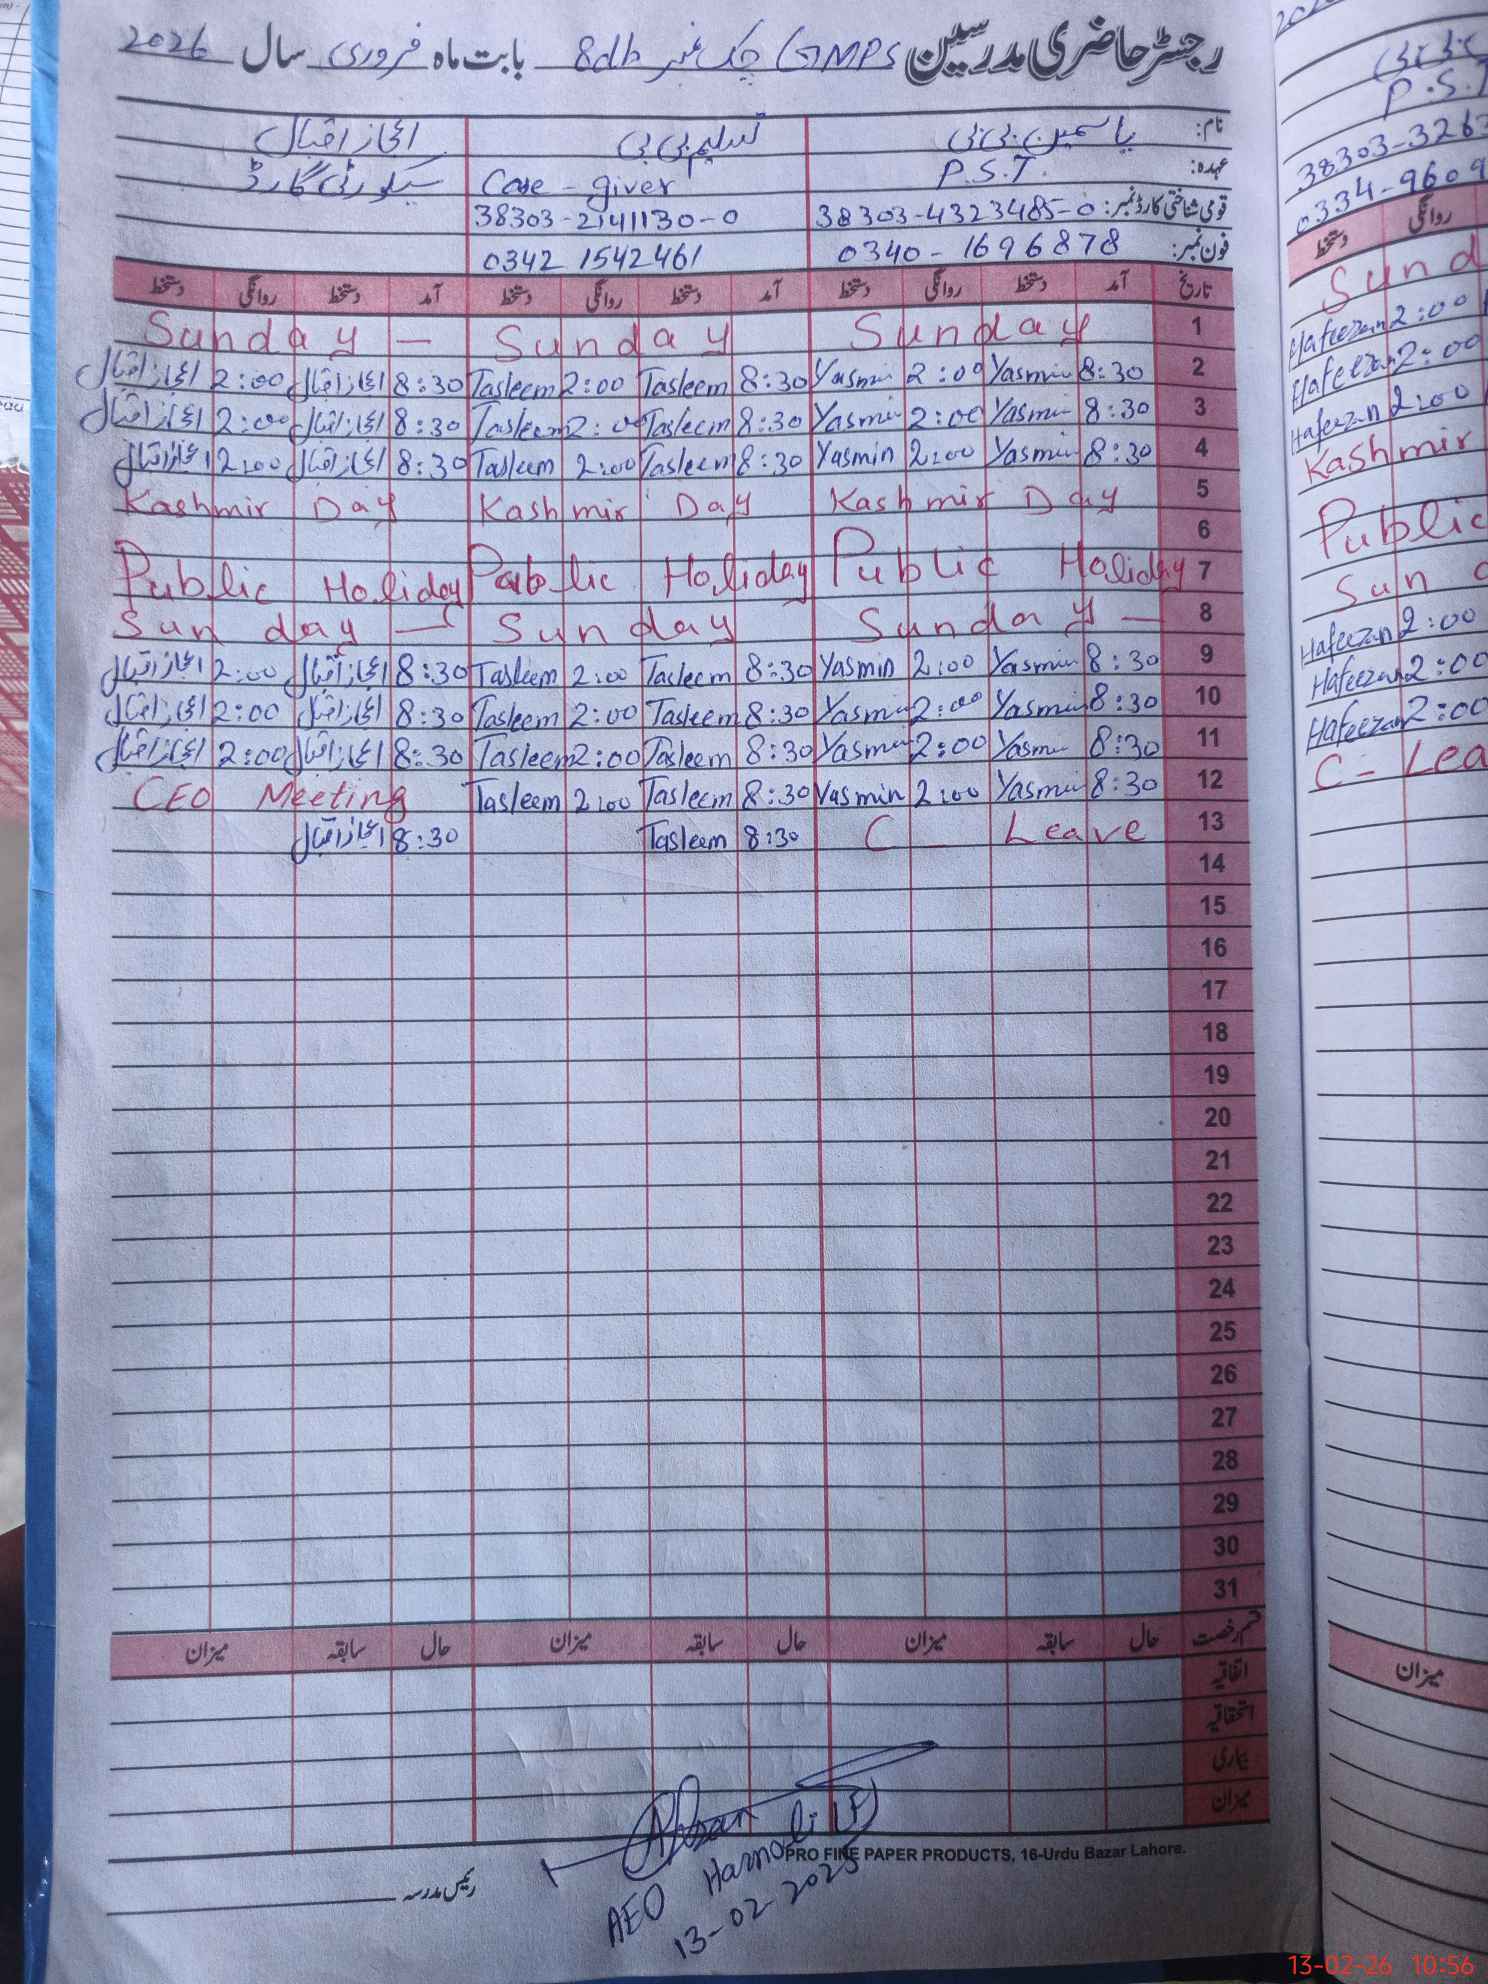 رجسٹر حاضری مدرسین GMPS چک نمبر 8db بابت ماہ فروری سال 2026
نام: یاسمین بی بی تسلیم بی بی اعجاز اقبال
عہدہ: P.S.T. Care - giver سیکورٹی گارڈ
قومی شناختی کارڈ نمبر: 38303-4323485-0 38303-2141130-0
فون نمبر: 0340-1696878 0342 1542461
تاریخ آمد دستخط روانگی دستخط آمد دستخط روانگی دستخط آمد دستخط روانگی دستخط
1 Sunday Sunday Sunday —
2 8:30 Yasmin 2:00 Yasmin 8:30 Tasleem 2:00 Tasleem 8:30 اعجاز اقبال 2:00 اعجاز اقبال
3 8:30 Yasmin 2:00 Yasmin 8:30 Tasleem 2:00 Tasleem 8:30 اعجاز اقبال 2:00 اعجاز اقبال
4 8:30 Yasmin 2:00 Yasmin 8:30 Tasleem 2:00 Tasleem 8:30 اعجاز اقبال 2:00 اعجاز اقبال
5 Kashmir Day Kashmir Day Kashmir Day
6
7 Public Holiday Public Holiday Public Holiday
8 Sunday — Sunday Sunday —
9 8:30 Yasmin 2:00 Yasmin 8:30 Tasleem 2:00 Tasleem 8:30 اعجاز اقبال 2:00 اعجاز اقبال
10 8:30 Yasmin 2:00 Yasmin 8:30 Tasleem 2:00 Tasleem 8:30 اعجاز اقبال 2:00 اعجاز اقبال
11 8:30 Yasmin 2:00 Yasmin 8:30 Tasleem 2:00 Tasleem 8:30 اعجاز اقبال 2:00 اعجاز اقبال
12 8:30 Yasmin 2:00 Yasmin 8:30 Tasleem 2:00 Tasleem CEO Meeting
13 C Leave 8:30 Tasleem 8:30 اعجاز اقبال
14
15
16
17
18
19
20
21
22
23
24
25
26
27
28
29
30
31
قسم رخصت حال سابقہ میزان حال سابقہ میزان حال سابقہ میزان
اتفاقیہ
استحقاقیہ
بیماری
میزان
PRO FINE PAPER PRODUCTS, 16-Urdu Bazar Lahore.
رئیس مدرسہ
AEO Harnoli (F)
13-02-2025
P.S.T
38303-3263
0334-9609
روانگی دستخط
Sund
2:00 Hafeezan
2:00 Hafeezan
2:00 Hafeezan
Kashmir
Public
Sun d
2:00 Hafeezan
2:00 Hafeezan
2:00 Hafeezan
C - Lea
میزان
13-02-26 10:56